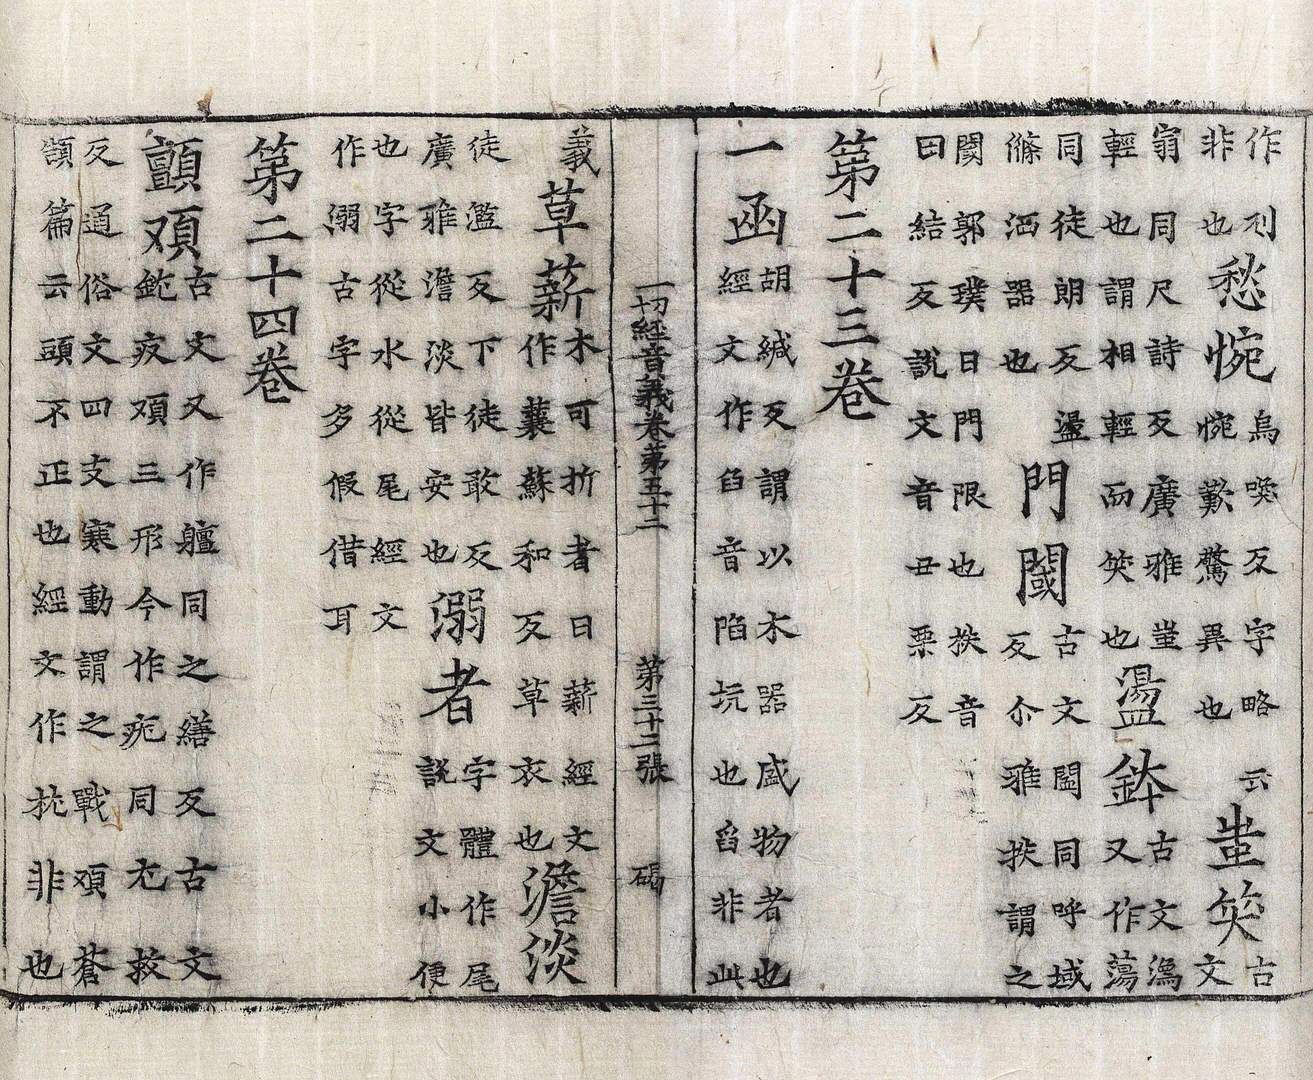 作列非也愁惋烏喚反字略云惋歎驚異也蚩笑古文
㝯同尺詩反廣雅蚩輕也謂相輕而笑也盪鉢古文潒又作蕩
同徒朗反盪滌洒器也門閾古文同呼域反尒雅抶謂之
閾郭璞曰門限也抶音田結反說文音丑栗反
第二十三卷
一函胡緘反謂以木器盛物者也經文作臽音陷坑也臽非此
一切經音義卷第五十二 第三十二張 碣
義草薪木可折者曰薪經文作蘘蘇和反草衣也澹淡
徒濫反下徒敢反廣雅澹淡皆安也溺者字體作尾說文小便
也字從水從尾經文作溺古字多假借耳
第二十四卷
顫䪳古文又作同之繕反古文疫䪳三形今作疣同尤救
反通俗文四支寒動謂之戰䪳蒼頡篇云頭不正也經文作抗非也